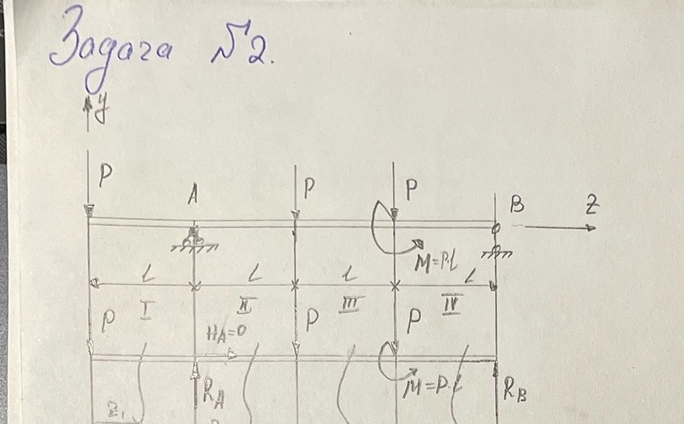 Задача №2.
y
P A P P B z
M=P·l
l l l l
I II III IV
P H_A=0 P P
R_A M=P·l R_B
z₁